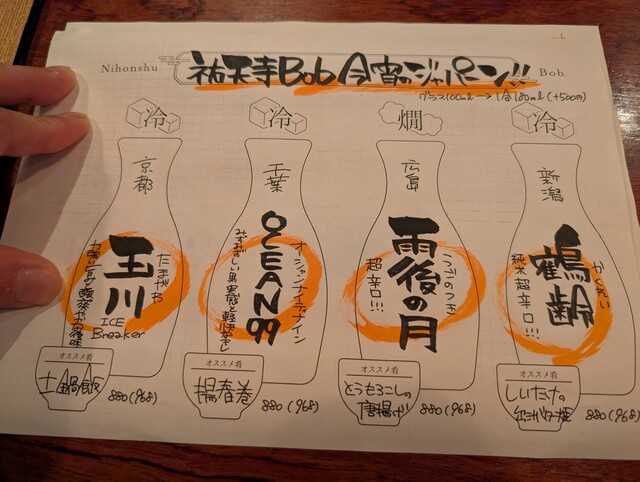 Nihonshu
祐天寺Bob 今宵のジャパーン!!
Bob
グラス100ml→1合180ml(+500円)
冷
京都
玉川
たまがわ
ICE
Breaker
オススメ肴
土鍋飯
880(968)
冷
千葉
OCEAN99
オーシャンナインティナイン
みずみずしい果実感と軽快さ
オススメ肴
揚春巻
880(968)
燗
広島
雨後の月
うごのつき
超辛口!!!
オススメ肴
とうもろこしの
唐揚げ
880(968)
冷
新潟
鶴齢
かくれい
純米超辛口!!!
オススメ肴
しいたけの
880(968)